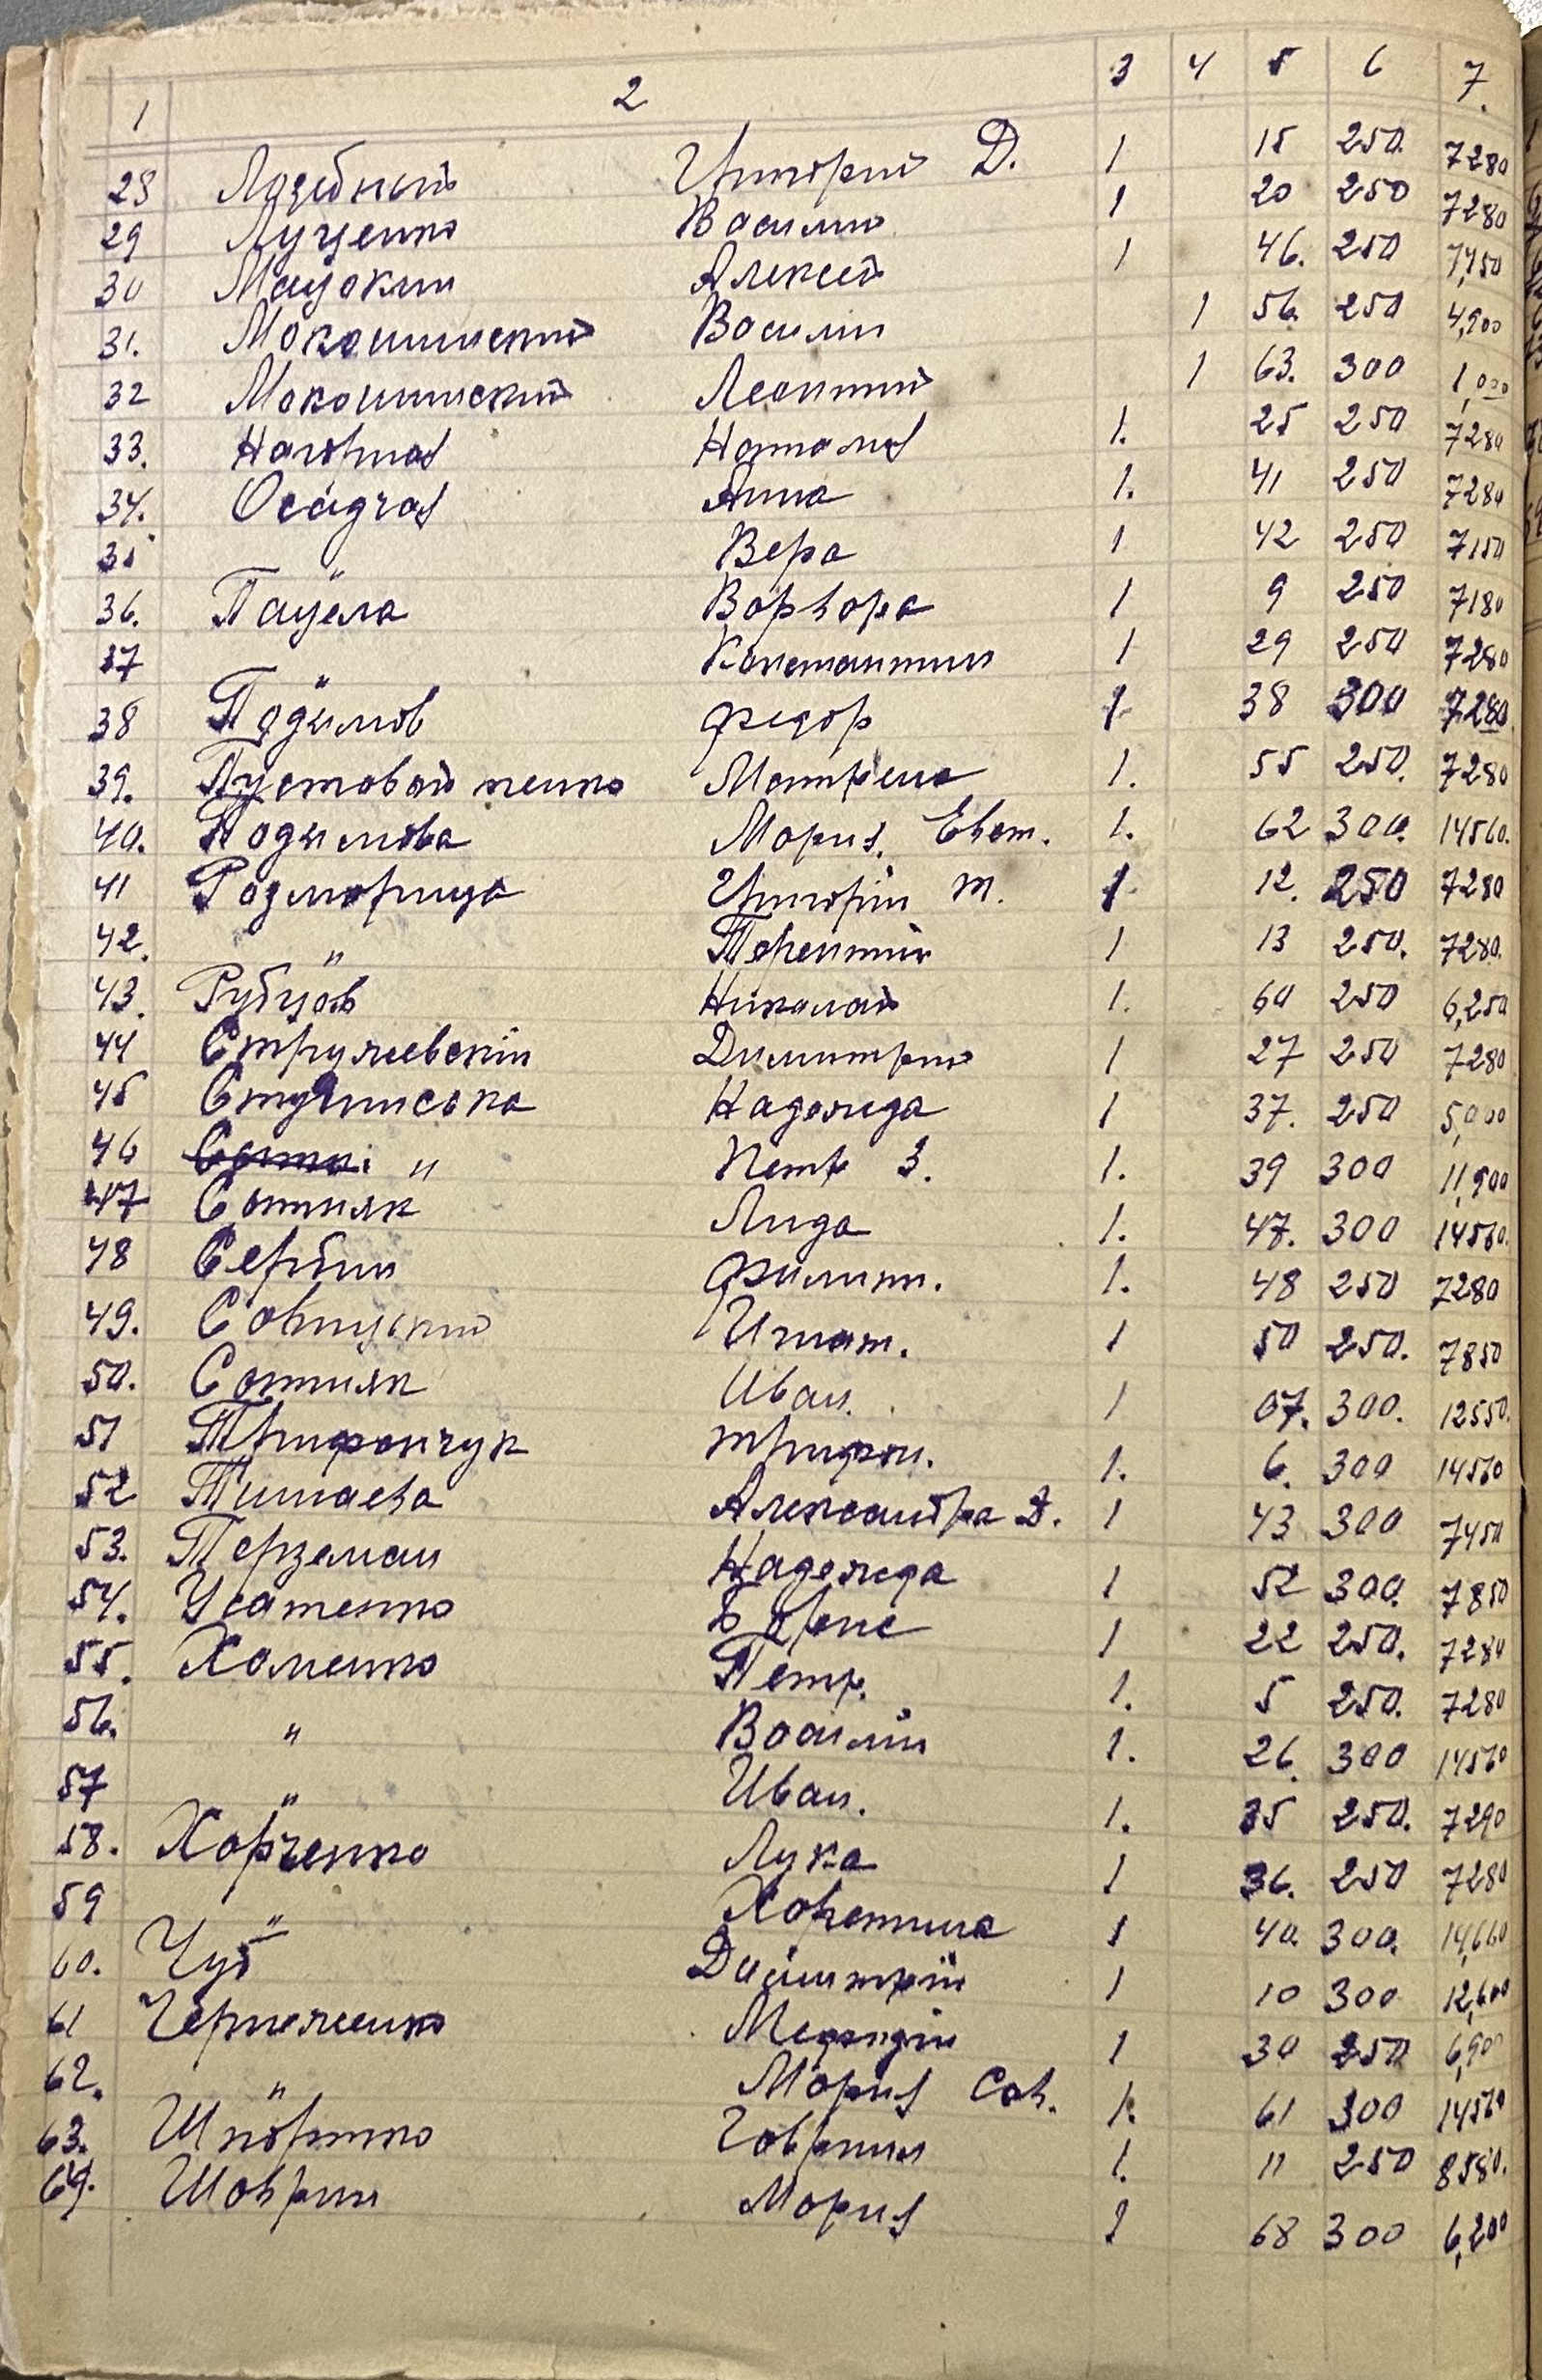 1 2 3 4 5 6 7.
28 Лазебный Григорий Д. 1 15 250. 7280
29 Луценко Василий 1 20 250 7280
30 Мацокин Алексей 1 46. 250 7,450
31. Мокошинский Василий 1 56. 250 4,900
32 Мокошинский Леонтий 1 63. 300 1,000
33. Нагорная Наталия 1. 25 250 7280
34. Осадчая Анна 1. 41 250 7280
35 " Вера 1 42 250 7150
36. Пацела Варвара 1 9 250 7180
37 " Константин 1 29 250 7280
38 Подымов Федор 1 38 300 7280
39. Пустовойтенко Матрена 1. 55 250. 7280
40. Подымова Мария Евст. 1. 62 300. 14560.
41 Розморица Григорій Т. 1 12. 250 7280
42. " Терентий 1 13 250. 7280.
43. Рубцов Николай 1. 60 250 6,250
44 Стружевскій Димитрий 1 27 250 7280
45 Надежда 1 37. 250 5,000
46 " Петр З. 1. 39 300 11,900
47 Сотник Лида 1. 47. 300 14560.
48 Сербин Филипп. 1. 48 250 7280
49. Игнат. 1 50 250. 7850
50. Сотник Иван. 1 67. 300. 12550.
51 Трифончук Трифон. 1. 6. 300 14560
52 Тимаева Александра Д. 1 43 300 7450
53. Терземан Надежда 1 52 300. 7850
54. Усатенко Борис 1 22 250. 7280
55. Хоменко Петр. 1. 5 250. 7280
56. " Василій 1. 26. 300 14560
57 " Иван. 1. 35 250. 7290
58. Харченко Лука 1 36. 250 7280
59 " Харитина 1 40. 300. 14,660
60. Чуб Димитрій 1 10 300 12,600
61 Чернеженко Мефодій 1 30 250 6,900
62. " Мария Сав. 1. 61 300 14560
63. Шпортко Гавриил 1. 11 250 8580.
64. Шаврин Мария 1 68 300 6,200